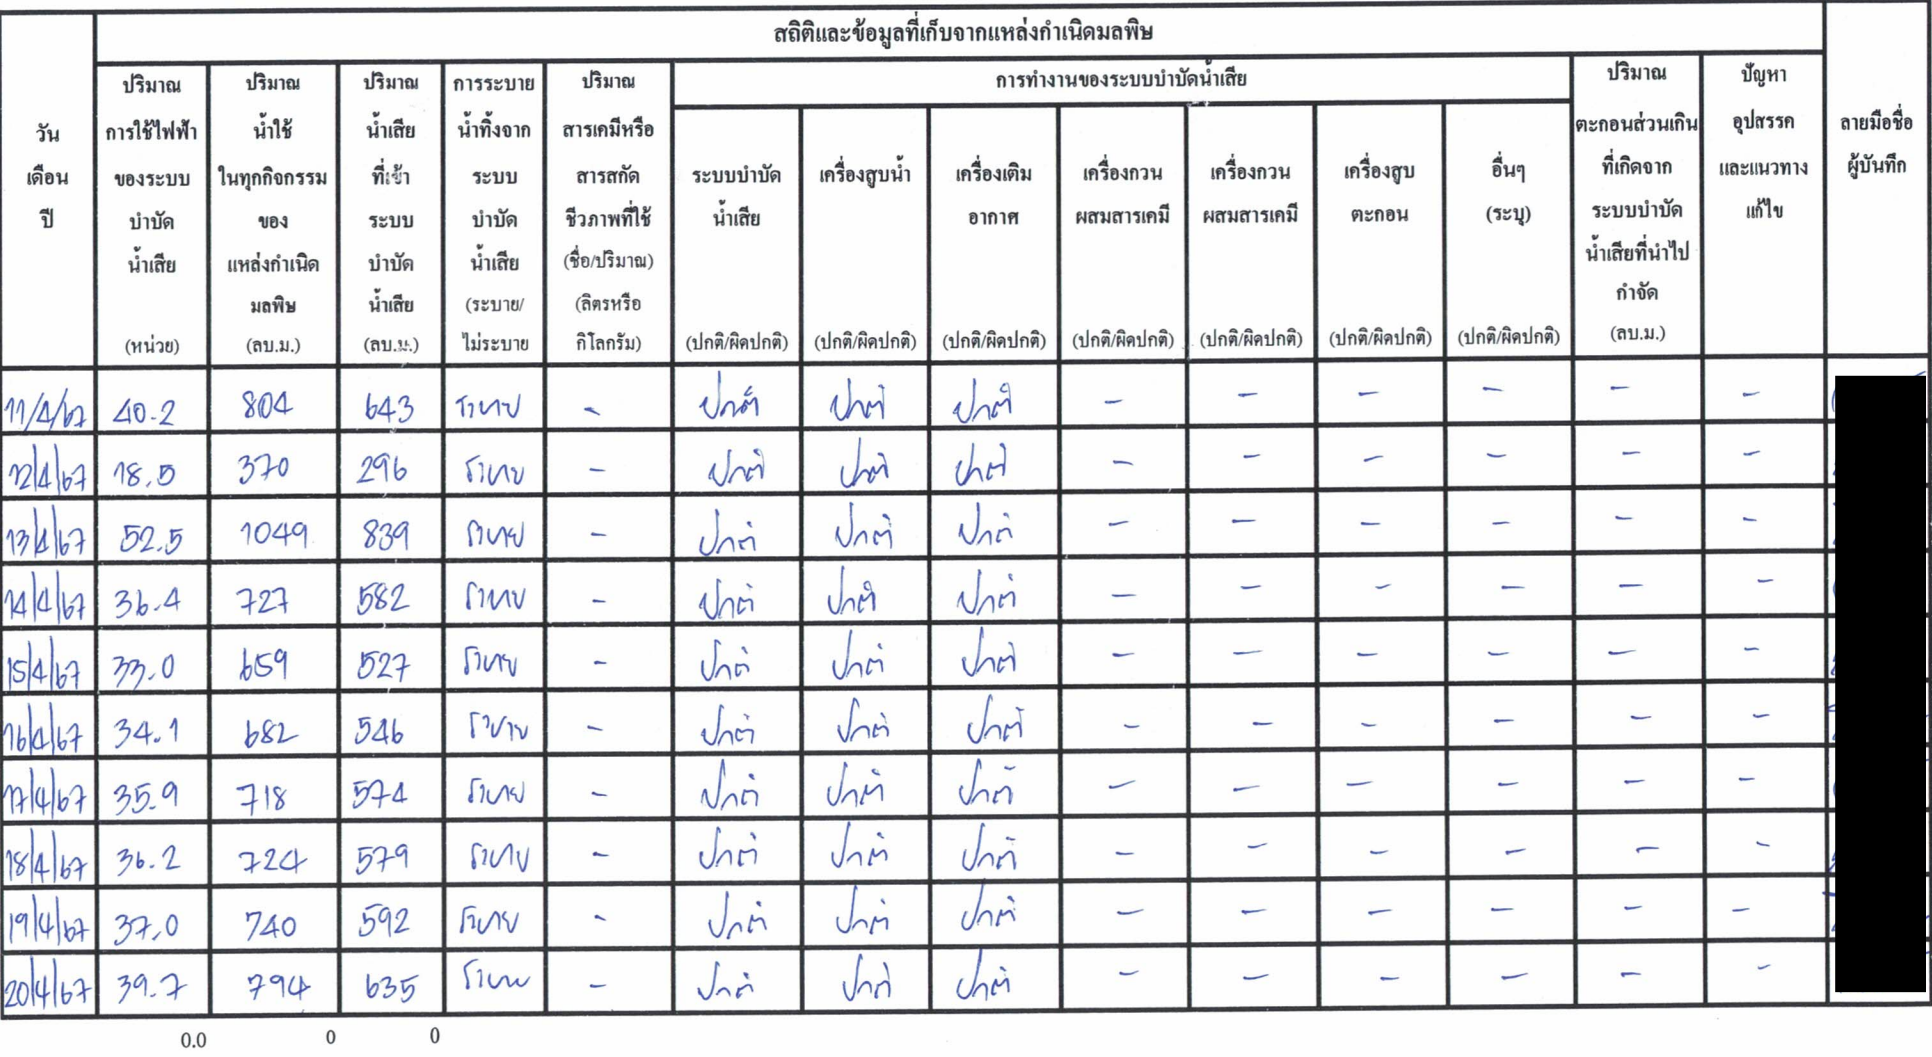 สถิติและข้อมูลที่เก็บจากแหล่งกำเนิดมลพิษ
วัน เดือน ปี
ปริมาณ การใช้ไฟฟ้า ของระบบ บำบัด น้ำเสีย (หน่วย)
ปริมาณ น้ำใช้ ในทุกกิจกรรม ของ แหล่งกำเนิด มลพิษ (ลบ.ม.)
ปริมาณ น้ำเสีย ที่เข้า ระบบ บำบัด น้ำเสีย (ลบ.ม.)
การระบาย น้ำทิ้งจาก ระบบ บำบัด น้ำเสีย (ระบาย/ ไม่ระบาย
ปริมาณ สารเคมีหรือ สารสกัด ชีวภาพที่ใช้ (ชื่อ/ปริมาณ) (ลิตรหรือ กิโลกรัม)
การทำงานของระบบบำบัดน้ำเสีย
ระบบบำบัด น้ำเสีย (ปกติ/ผิดปกติ)
เครื่องสูบน้ำ (ปกติ/ผิดปกติ)
เครื่องเติม อากาศ (ปกติ/ผิดปกติ)
เครื่องกวน ผสมสารเคมี (ปกติ/ผิดปกติ)
เครื่องกวน ผสมสารเคมี (ปกติ/ผิดปกติ)
เครื่องสูบ ตะกอน (ปกติ/ผิดปกติ)
อื่นๆ (ระบุ) (ปกติ/ผิดปกติ)
ปริมาณ ตะกอนส่วนเกิน ที่เกิดจาก ระบบบำบัด น้ำเสียที่นำไป กำจัด (ลบ.ม.)
ปัญหา อุปสรรค และแนวทาง แก้ไข
ลายมือชื่อ ผู้บันทึก
11/4/67 40.2 804 643 ระบาย - ปกติ ปกติ ปกติ - - - - - -
12/4/67 18.5 370 296 ระบาย - ปกติ ปกติ ปกติ - - - - - -
13/4/67 52.5 1049 839 ระบาย - ปกติ ปกติ ปกติ - - - - - -
14/4/67 36.4 727 582 ระบาย - ปกติ ปกติ ปกติ - - - - - -
15/4/67 33.0 659 527 ระบาย - ปกติ ปกติ ปกติ - - - - - -
16/4/67 34.1 682 546 ระบาย - ปกติ ปกติ ปกติ - - - - - -
17/4/67 35.9 718 574 ระบาย - ปกติ ปกติ ปกติ - - - - - -
18/4/67 36.2 724 579 ระบาย - ปกติ ปกติ ปกติ - - - - - -
19/4/67 37.0 740 592 ระบาย - ปกติ ปกติ ปกติ - - - - - -
20/4/67 39.7 794 635 ระบาย - ปกติ ปกติ ปกติ - - - - - -
0.0 0 0